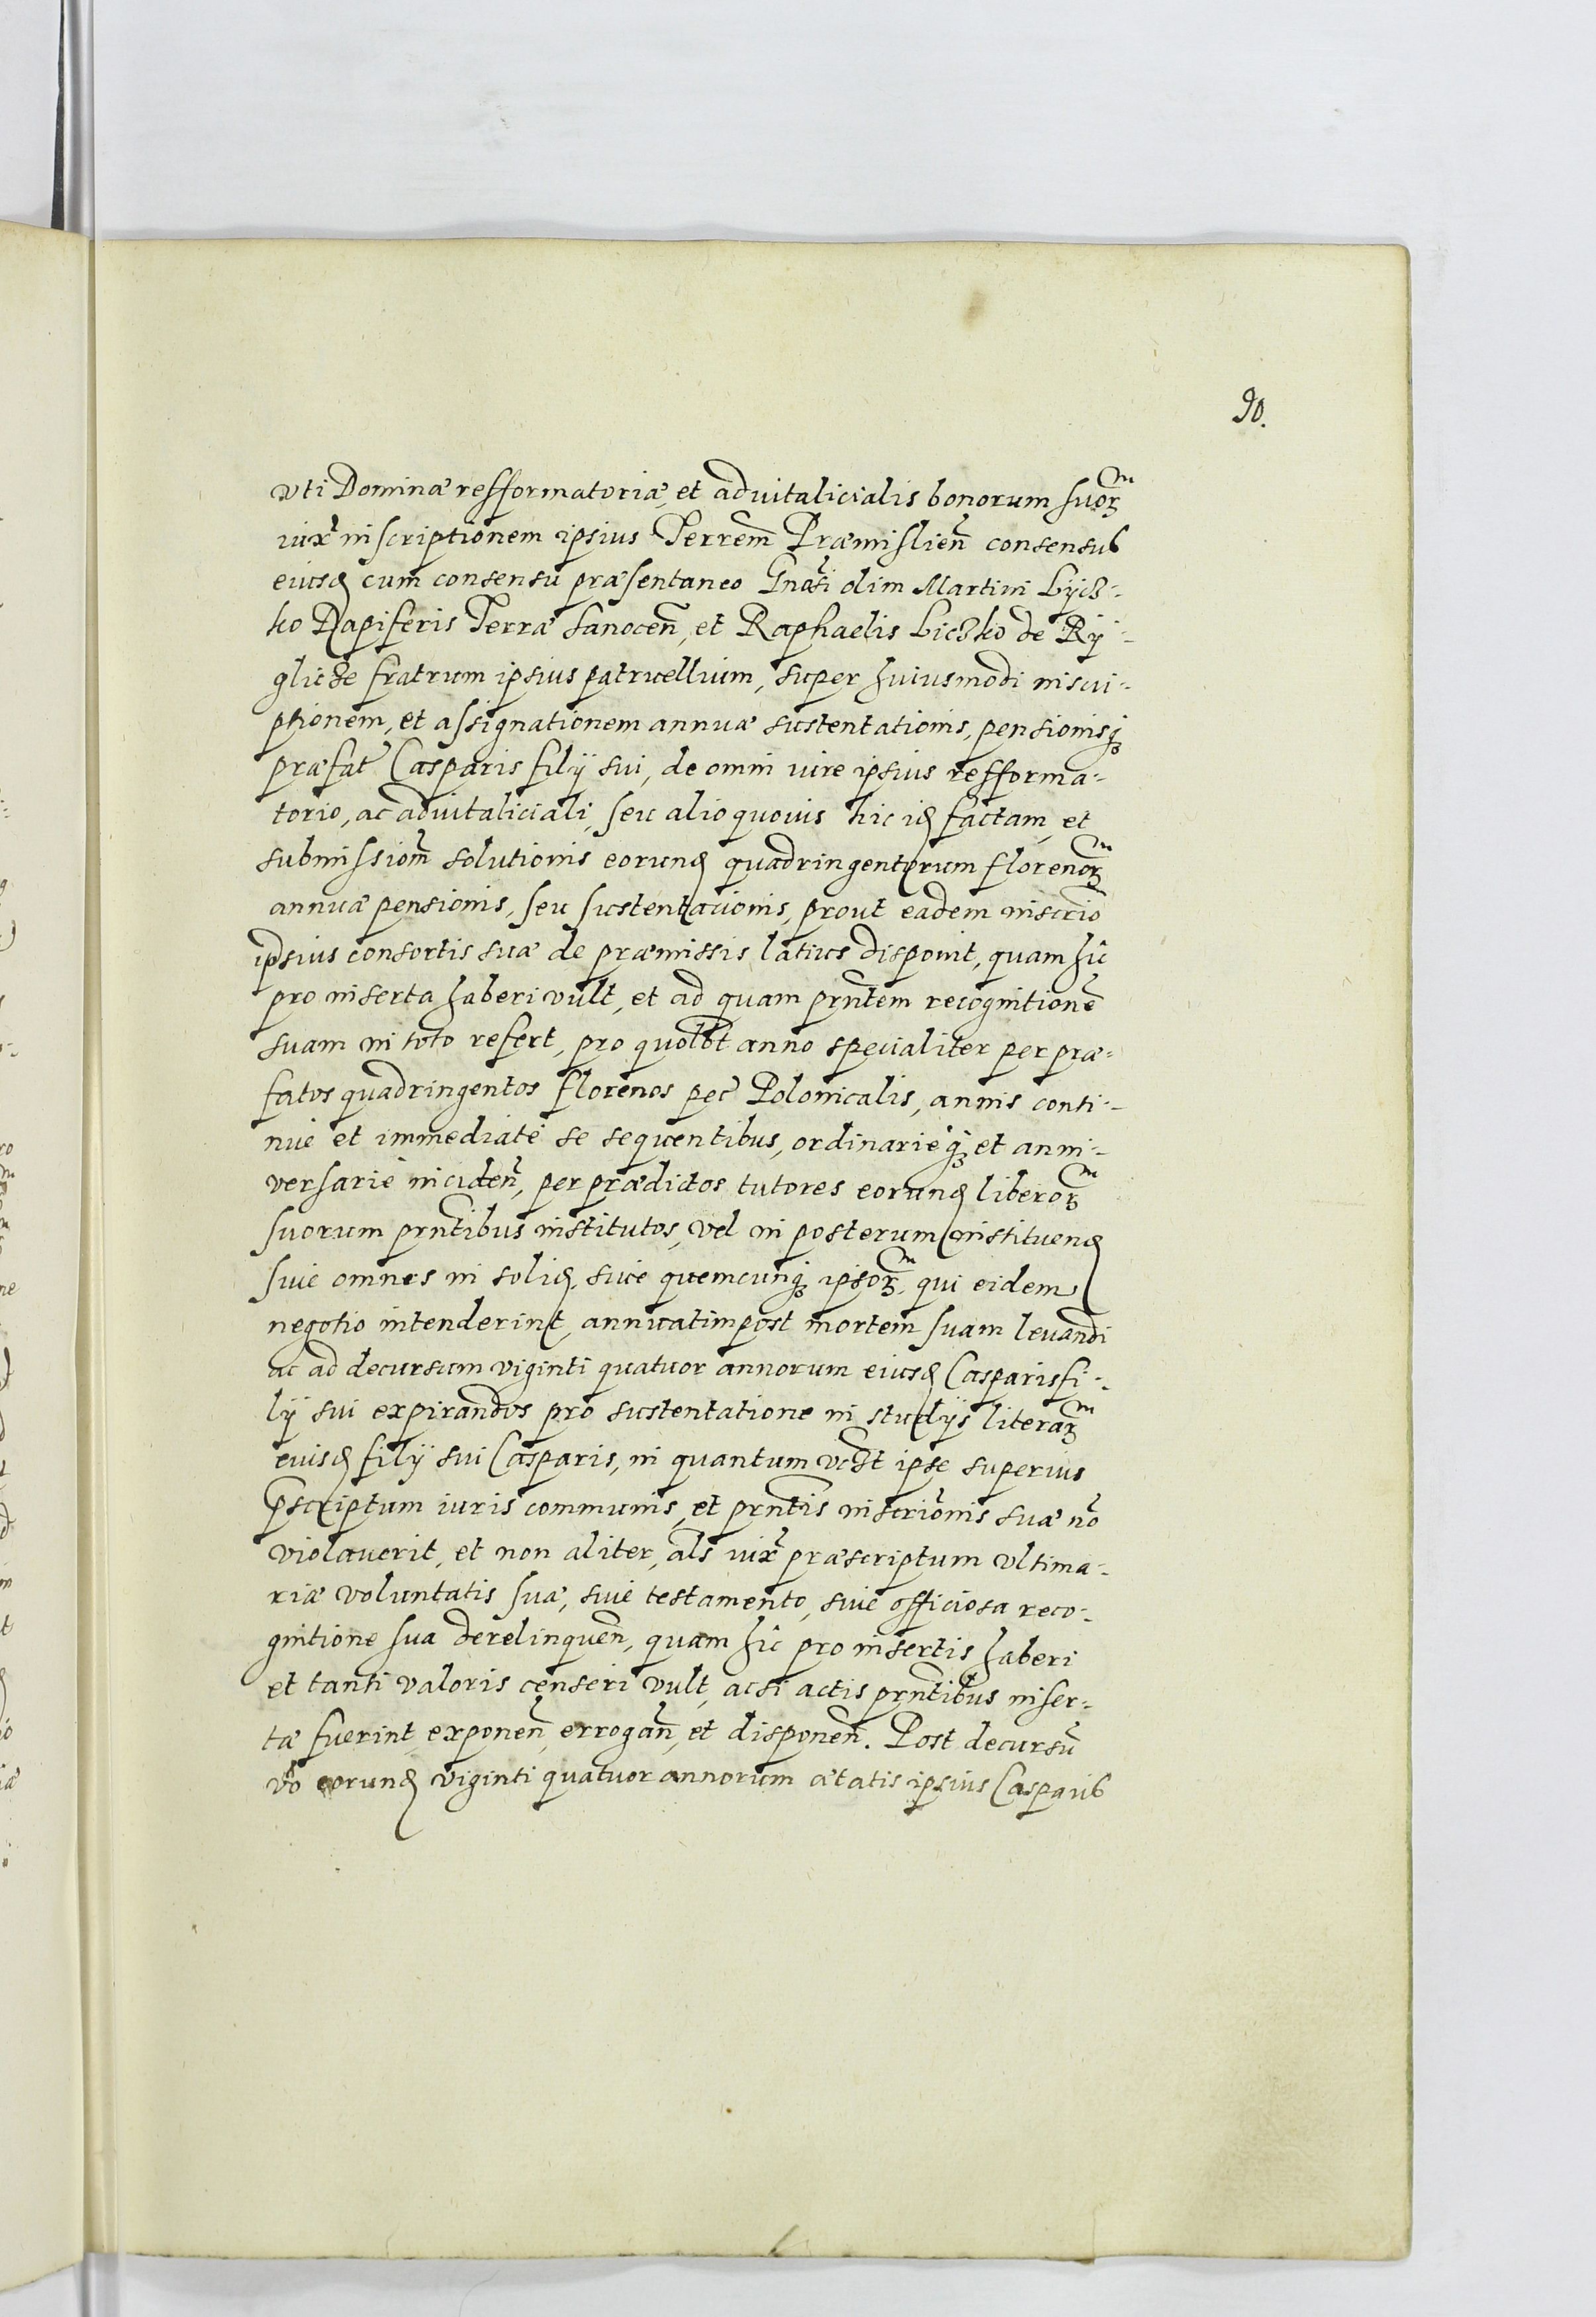 90.
vti Dominæ refformatoriæ, et advitalicialis bonorum suoꝝ
iuxͭ inscriptionem ipsius Terrem̃ Præmislien̄ consensus
eiusd cum consensu præsentaneo Gnãsi olim Martini Łycz-
ko Dapiferis Terræ Sanocen̄, et Raphaelis Liczko de Ry-
glicze fratrum ipsius patruellium, super huiusmodi inscri-
ptionem, et assignationem annuæ sustentationis, pensionisqꝫ
præfat̃ Casparis filÿ sui, de omni iure ipsius refforma-
torio, ac advitaliciali, seu alio quovis hic id factam, et
submissiom̃ solutionis eorund quadringentorum florenoꝝ
annuæ pensionis, seu sustentacionis, prout eadem inscrio
ipsius consortis suæ de præmissis latius disponit, quam hîc
pro inserta haberi vult, et ad quam prñtem recognitionē
suam in toto refert, pro quolbt anno specialiter per præ-
fatos quadringentos florenos pec̃ Polonicalis, annis conti-
nue et immediatè se sequentibus, ordinarièqꝫ et anni-
versariè inciden̄, per prædictos tutores eorund liberoꝝ
suorum prñtibus institutos, vel in posterum instituend
sive omnes in solid, sive quemcunqꝫ ipsoꝝ, qui eidem
negotio intenderint, annuatim post mortem suam levandi
ac ad decursum viginti quatuor annorum eiusd Casparis fi-
lÿ sui expirandos pro sustentatione in studÿs literaꝝ
euisd filÿ sui Casparis, in quantum vdst ipse superius
p̄scriptum iuris communis, et prñtis inscriõnis suæ nõ
violaverit, et non aliter, als iuxͭ præscriptum vltima-
riæ voluntatis suæ, sive testamento, sive officiosa reco-
gnitione sua derelinquen̄, quam hîc pro insertis haberi
et tanti valoris censeri vult, acsi actis prñtibus inser-
tæ fuerint, exponen̄, errogan̄, et disponen̄. Post decursũ
vô eorund viginti quatuor annorum ætatis ipsius Casparis